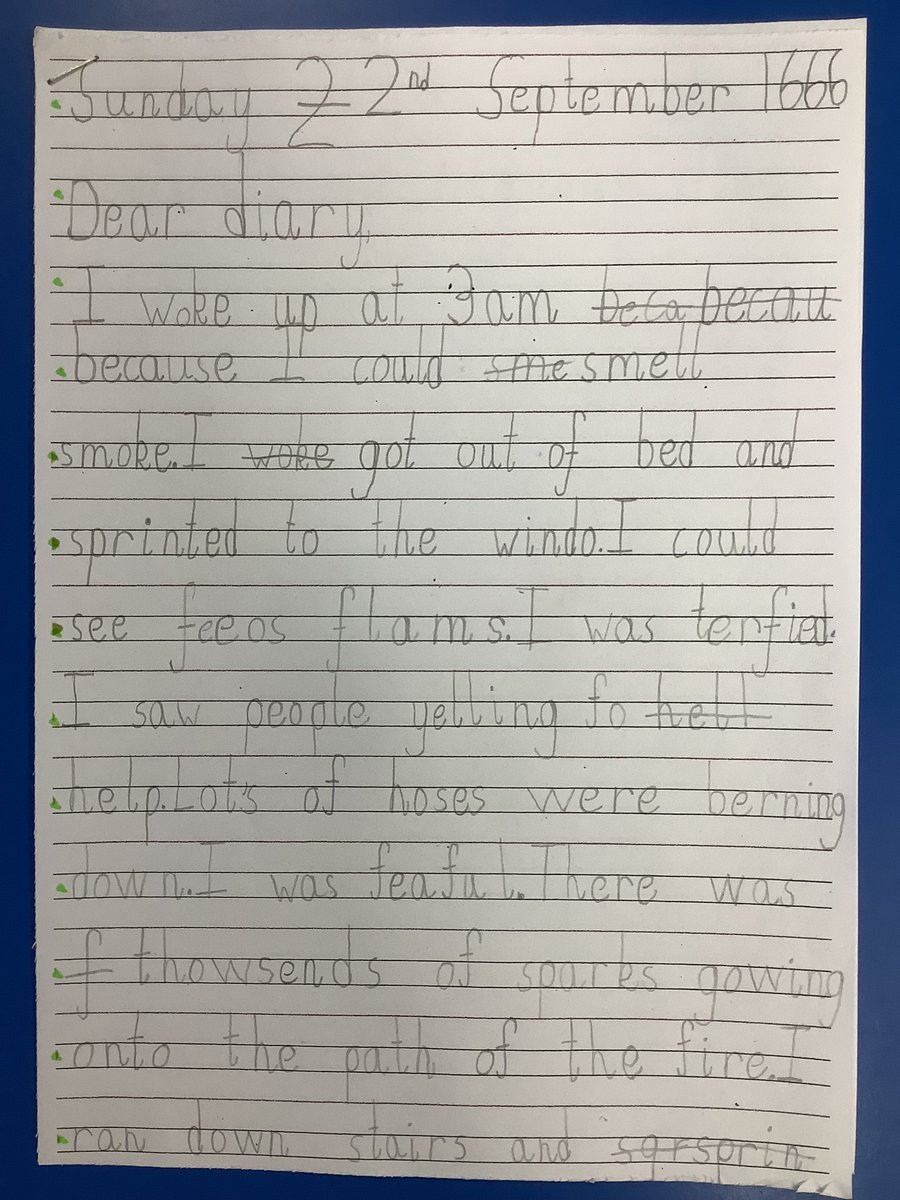 Sunday 2 2nd September 1666
Dear diary,
I woke up at 3am beca becau
because I could sme smell
smoke. I woke got out of bed and
sprinted to the windo. I could
see feeos flams. I was terfied.
I saw people yelling fo hell
help. Lots of hoses were berning
down. I was feaful. There was
f thowsends of sparks gowing
onto the path of the fire. I
ran down stairs and sqrsprin